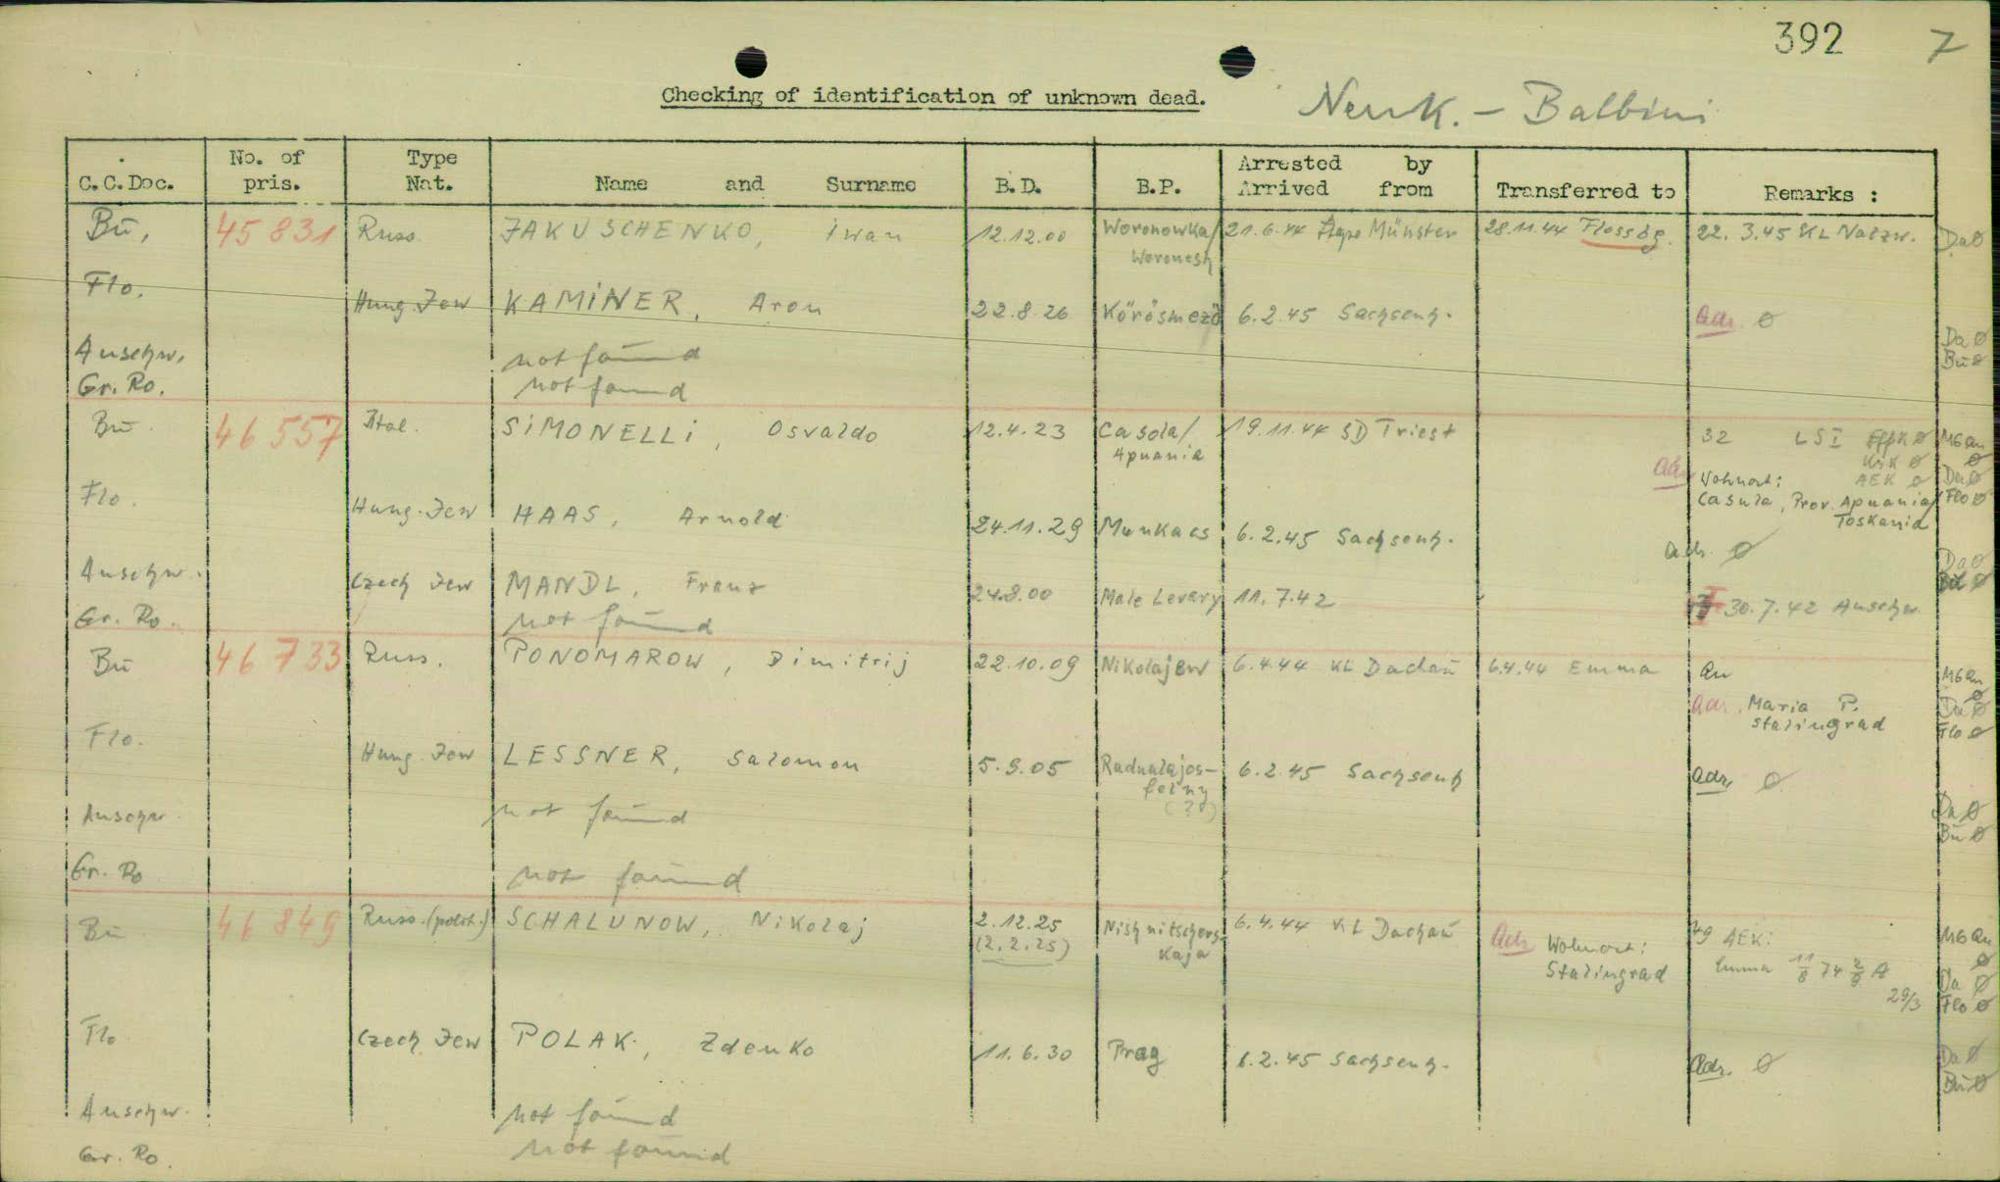 392 7
Checking of identification of unknown dead. Neuk. - Balbini
C.C.Doc. No. of pris. Type Nat. Name and Surname B.D. B.P. Arrested by Arrived from Transferred to Remarks :
Bū, 45 831 Russ. JAKUSCHENKO, Iwan 12.12.00 Woronowka/ 21.6.44 Münster 28.11.44 Flossbg. 22. 3.45 KL Natzw. Da Ø
Woronesh
Flo. Hung. Jew KAMINER, Aron 22.8.26 Körösmezö 6.2.45 Sachsenh. Adr. Ø
Da Ø
Auschw. not found Bū Ø
Gr. Ro. not found
Bū. 46 557 Ital. SIMONELLI, Osvaldo 12.4.23 Casola/ 19.11.44 SD Triest 32 LSI EffK Ø M6 an
Apuania Ø
Adr. Wohnort: AEK Ø Da Ø
Casula, Prov. Apuania/ Flo Ø
Toskania
Flo. Hung. Jew HAAS, Arnold 24.11.29 Munkacs 6.2.45 Sachsenh. Adr. Ø
Da Ø
Auschw. Czech Jew MANDL, Franz 24.8.00 Male Levary 11.7.42 30.7.42 Auschw.
Gr. Ro. not found
Bū 46 733 Russ. PONOMAROW, Dimitrij 22.10.09 Nikolajew 6.4.44 KL Dachau 6.4.44 Emma an M6 an
Ø
Adr. Maria P. Da Ø
Stalingrad Flo Ø
Flo. Hung. Jew LESSNER, Salomon 5.9.05 6.2.45 Sachsenh Adr. Ø
Auschw. not found Da Ø
Bū Ø
Gr. Ro not found
Bū 46 849 Russ. (polit.) SCHALUNOW, Nikolaj 2.12.25 Nishnitschers- 6.4.44 KL Dachau Adr Wohnort: 49 AEK: M6 an
(2.2.25) kaja Stalingrad Emma 11/8 74 2/9 A Ø
29/3 Da Ø
Flo Ø
Flo Czech Jew POLAK, Zdenko 11.6.30 Prag 6.2.45 Sachsenh. Adr. Ø Da Ø
Bū Ø
Auschw. not found
Gr. Ro. not found